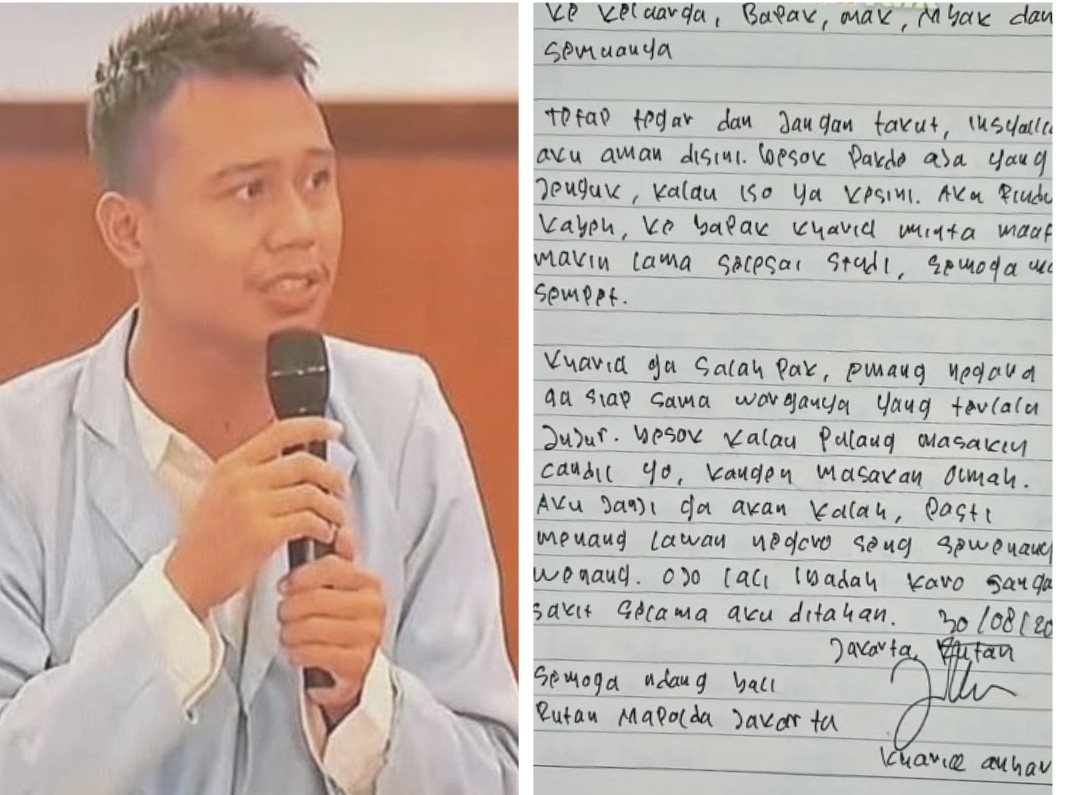 ke keluarga, Bapak, mak, Mbak dan
semuanya
tetap tegar dan jangan takut, insyaall
aku aman disini. besok Pakde aja yang
jenguk, kalau iso ya kesini. Aku rindu
kabeh, ke bapak khariq minta maaf
makin lama selesai studi, semoga
sempet.
khariq ga salah pak, emang negara
ga siap sama warganya yang terlalu
jujur. besok kalau pulang masakin
cambil yo, kangen masakan Omah.
Aku janji ga akan kalah, pasti
menang lawan negoro seng sewenang
wenang. Ojo lali ibadah karo janga
sakit selama aku ditahan. 30/08/20
Jakarta, Rutan
Semoga ndang bali
Rutan Mapolda Jakarta
Khariq anhar